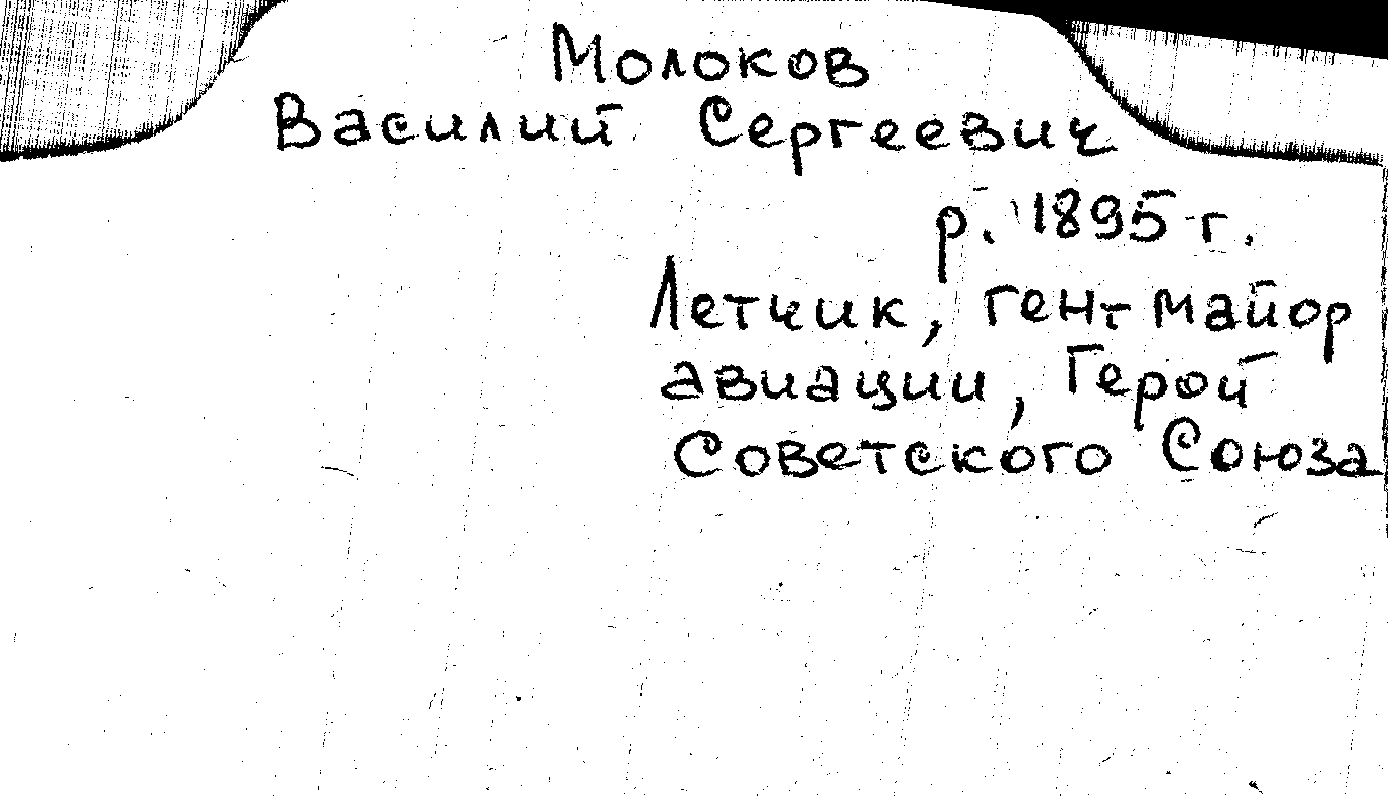 Молоков
Василий Сергеевич
р. 1895 г.
Летчик, ген-майор
авиации, Герой
Советского Союза